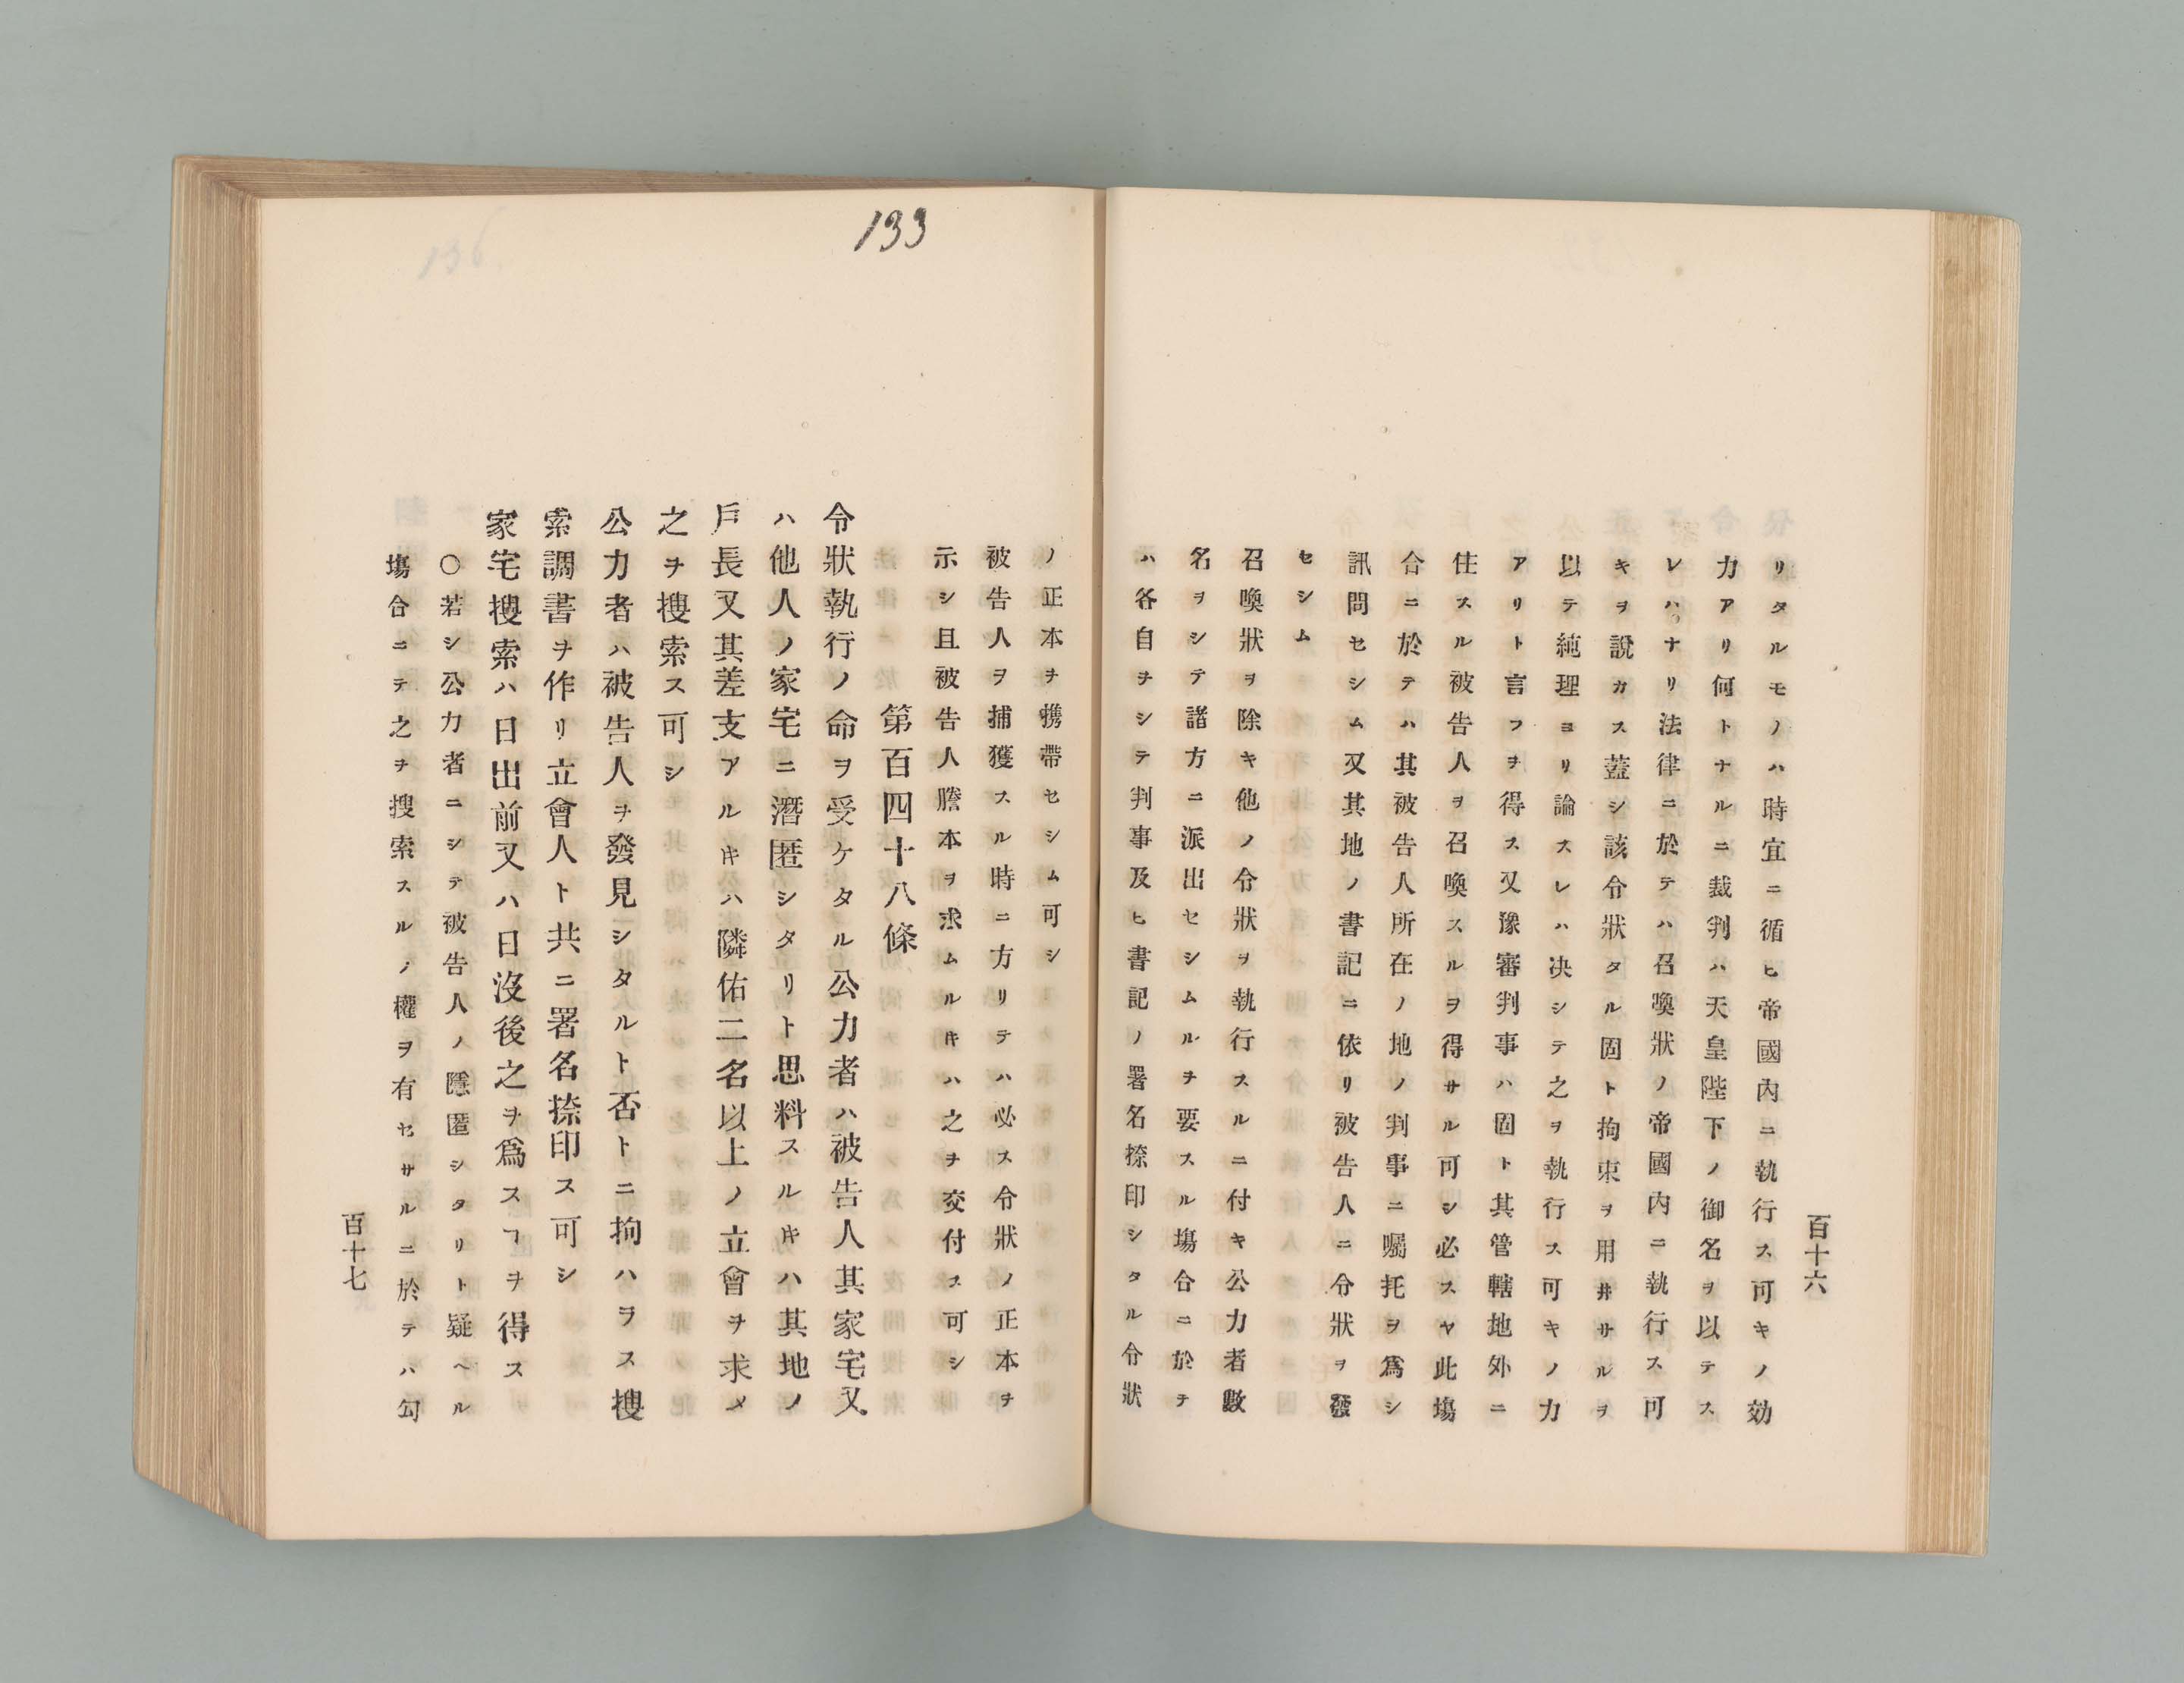 百十六
リタルモノハ時宜ニ循ヒ帝國內ニ執行ス可キノ効
力アリ何トナルニ裁判ハ天皇陛下ノ御名ヲ以テス
レハナリ法律ニ於テハ召喚狀ノ帝國內ニ執行ス可
キヲ說カス蓋シ該令狀タル固ト拘束ヲ用井サルヲ
以テ純理ヨリ論スレハ决シテ之ヲ執行ス可キノ力
アリト言フヲ得ス又豫審判事ハ固ト其管轄地外ニ
住スル被告人ヲ召喚スルヲ得サル可シ必スヤ此塲
合ニ於テハ其被告人所在ノ地ノ判事ニ囑托ヲ爲シ
訊問セシム又其地ノ書記ニ依リ被告人ニ令狀ヲ發
セシム
召喚狀ヲ除キ他ノ令狀ヲ執行スルニ付キ公力者數
名ヲシテ諸方ニ派出セシムルヲ要スル塲合ニ於テ
ハ各自ヲシテ判事及ヒ書記ノ署名捺印シタル令狀
ノ正本ヲ携帶セシム可シ
被告人ヲ捕獲スル時ニ方リテハ必ス令狀ノ正本ヲ
示シ且被告人謄本ヲ求ムルキハ之ヲ交付ス可シ
第百四十八條
令狀執行ノ命ヲ受ケタル公力者ハ被告人其家宅又
ハ他人ノ家宅ニ潛匿シタリト思料スルキハ其地ノ
戶長又其差支アルキハ隣佑二名以上ノ立會ヲ求メ
之ヲ搜索ス可シ
公力者ハ被告人ヲ發見シタルト否トニ拘ハラス搜
索調書ヲ作リ立會人ト共ニ署名捺印ス可シ
家宅搜索ハ日出前又ハ日沒後之ヲ爲スヿヲ得ス
〇若シ公力者ニシテ被告人ノ隱匿シタリト疑ヘル
塲合ニテ之ヲ搜索スルノ權ヲ有セサルニ於テハ勾
百十七
133
136